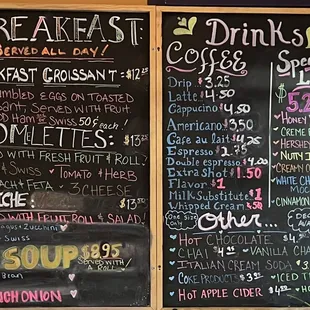 REAKFAST:
SERVED ALL DAY!
KFAST CROISSANT = $12.25
MBLED EGGS ON TOASTED
SANT, SERVED WITH FRUIT
HAM SWISS 50¢ each!
OMELETTES: $13.25
D WITH FRESH FRUIT & ROLL?
& SWISS TOMATO + HERB
ACH + FETA 3 CHEESE
CHE: $13.50
WITH FRUIT ROLL & SALAD!
Zucchini
Swiss
SOUP $8.95
SERVED WITH A ROLL
Bean
NCH ONION
Drinks
COFFEE
Drip $3.25
Latte $4.50
Cappucino 4.50
Americano 3.50
Cafe au lait $4.25
Espresso $1.95
Double espresso $2.00
Extra Shot $1.50
Flavor $1
Milk Substitute $1
Whipped Cream .50
One Size Only
Other...
HOT CHOCOLATE $4.
CHAI $4. VANILLA CHA
ITALIAN CREAM SODA
COKE PRODUCTS $3. ICED T
HOT APPLE CIDER HO
Spe
$5.2
HONEY
CREME
HERSHE
NUTTY I
CREAMY
WHITE CH
MOC
CINNAMON